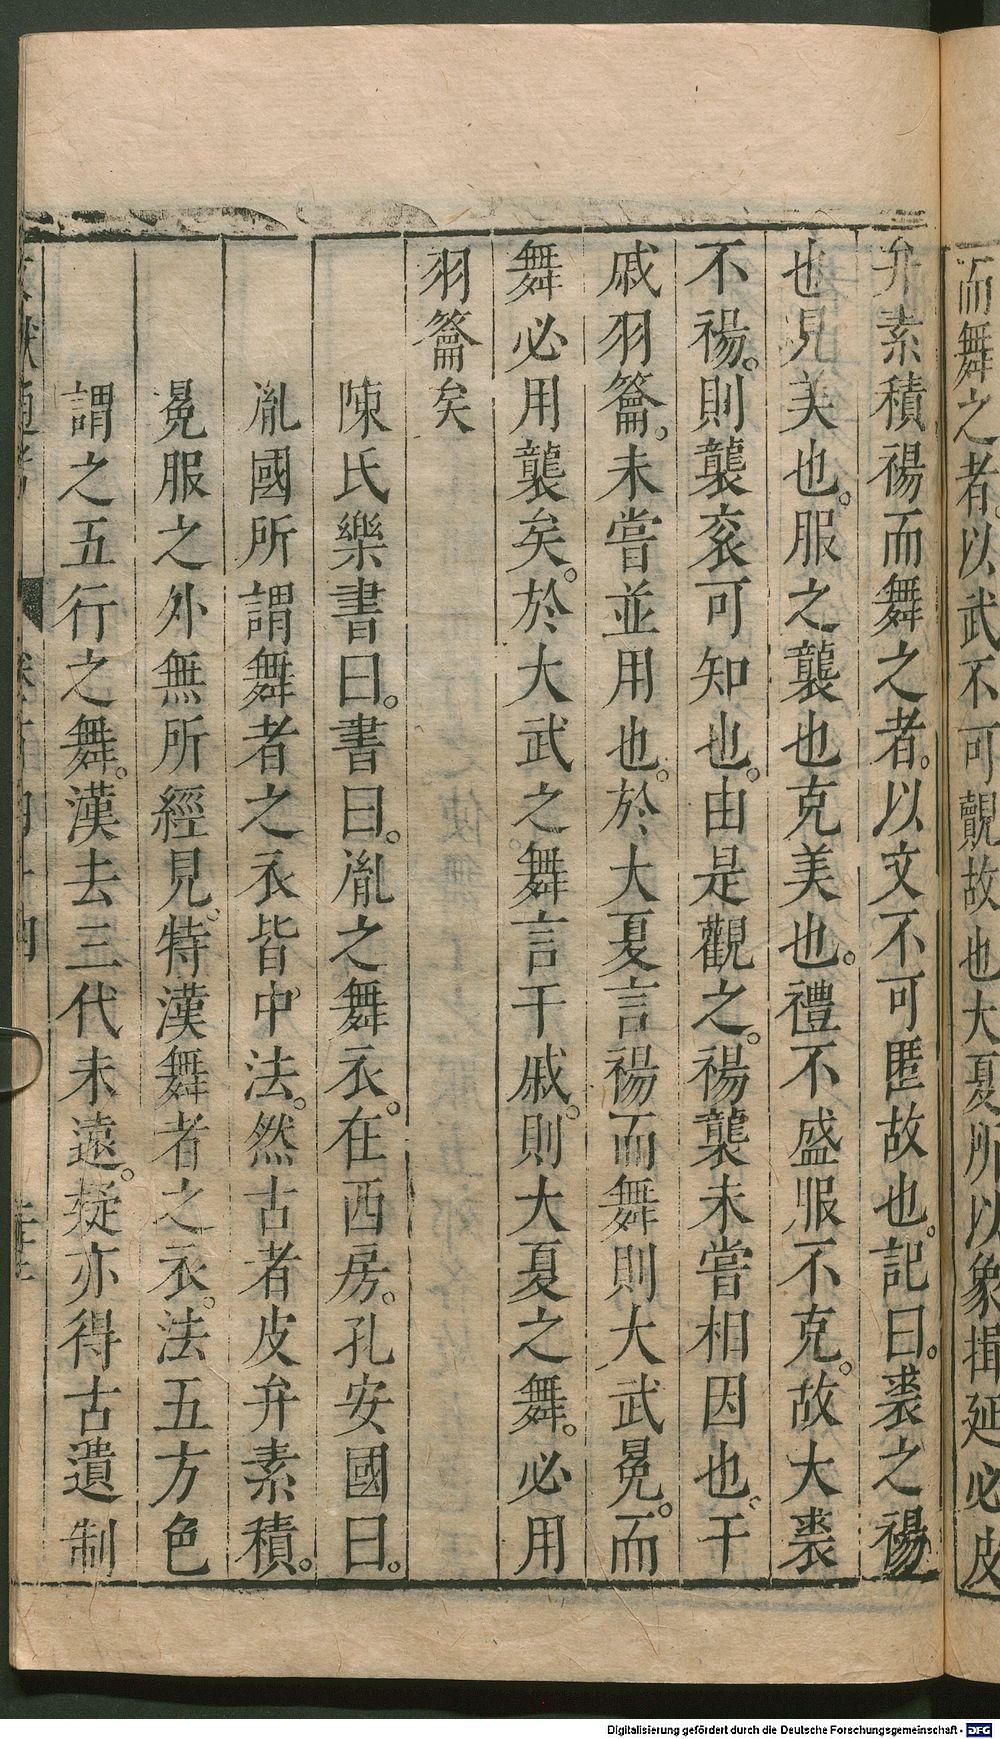 而舞之者。以武不可觀故也大夏所以象揖延必皮
弁素積裼而舞之者。以文不可匿故也。記曰。裘之裼
也見美也。服之襲也克美也。禮不盛服不克。故大裘
不裼。則襲衮可知也。由是觀之。裼襲未嘗相因也。干
戚羽籥。未嘗並用也。於大夏言裼而舞則大武冕。而
舞必用襲矣。於大武之舞言干戚。則大夏之舞。必用
羽籥矣
陳氏樂書曰。書曰。胤之舞衣。在西房。孔安國曰。
胤國所謂舞者之衣皆中法。然古者皮弁素積。
冕服之外無所經見。特漢舞者之衣。法五方色
謂之五行之舞。漢去三代未遠。疑亦得古遺制
Digitalisierung gefördert durch die Deutsche Forschungsgemeinschaft - DFG